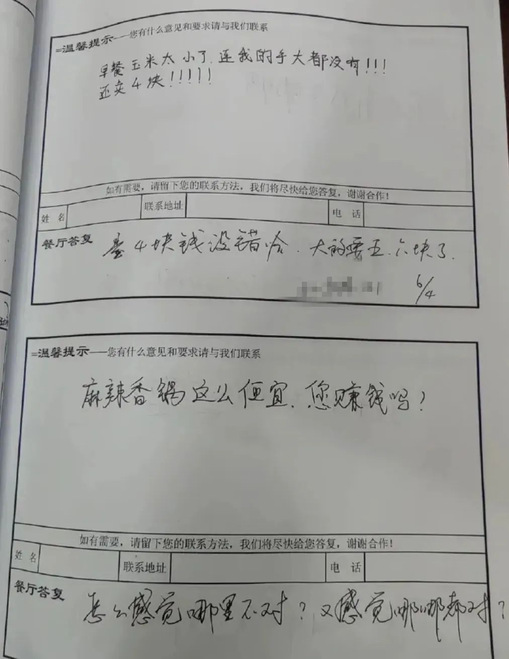 温馨提示——您有什么意见和要求请与我们联系
早餐玉米太小了,连我的手大都没有!!!
还卖4块!!!!!
如有需要,请留下您的联系方法,我们将尽快给您答复,谢谢合作!
姓名 联系地址 电话
餐厅答复 4块钱没错哈.大的要五.六块了
6/4
温馨提示——您有什么意见和要求请与我们联系
麻辣香锅这么便宜.您赚钱吗?
如有需要,请留下您的联系方法,我们将尽快给您答复,谢谢合作!
姓名 联系地址 电话
餐厅答复 怎么感觉哪里不对?又感觉哪哪都对?